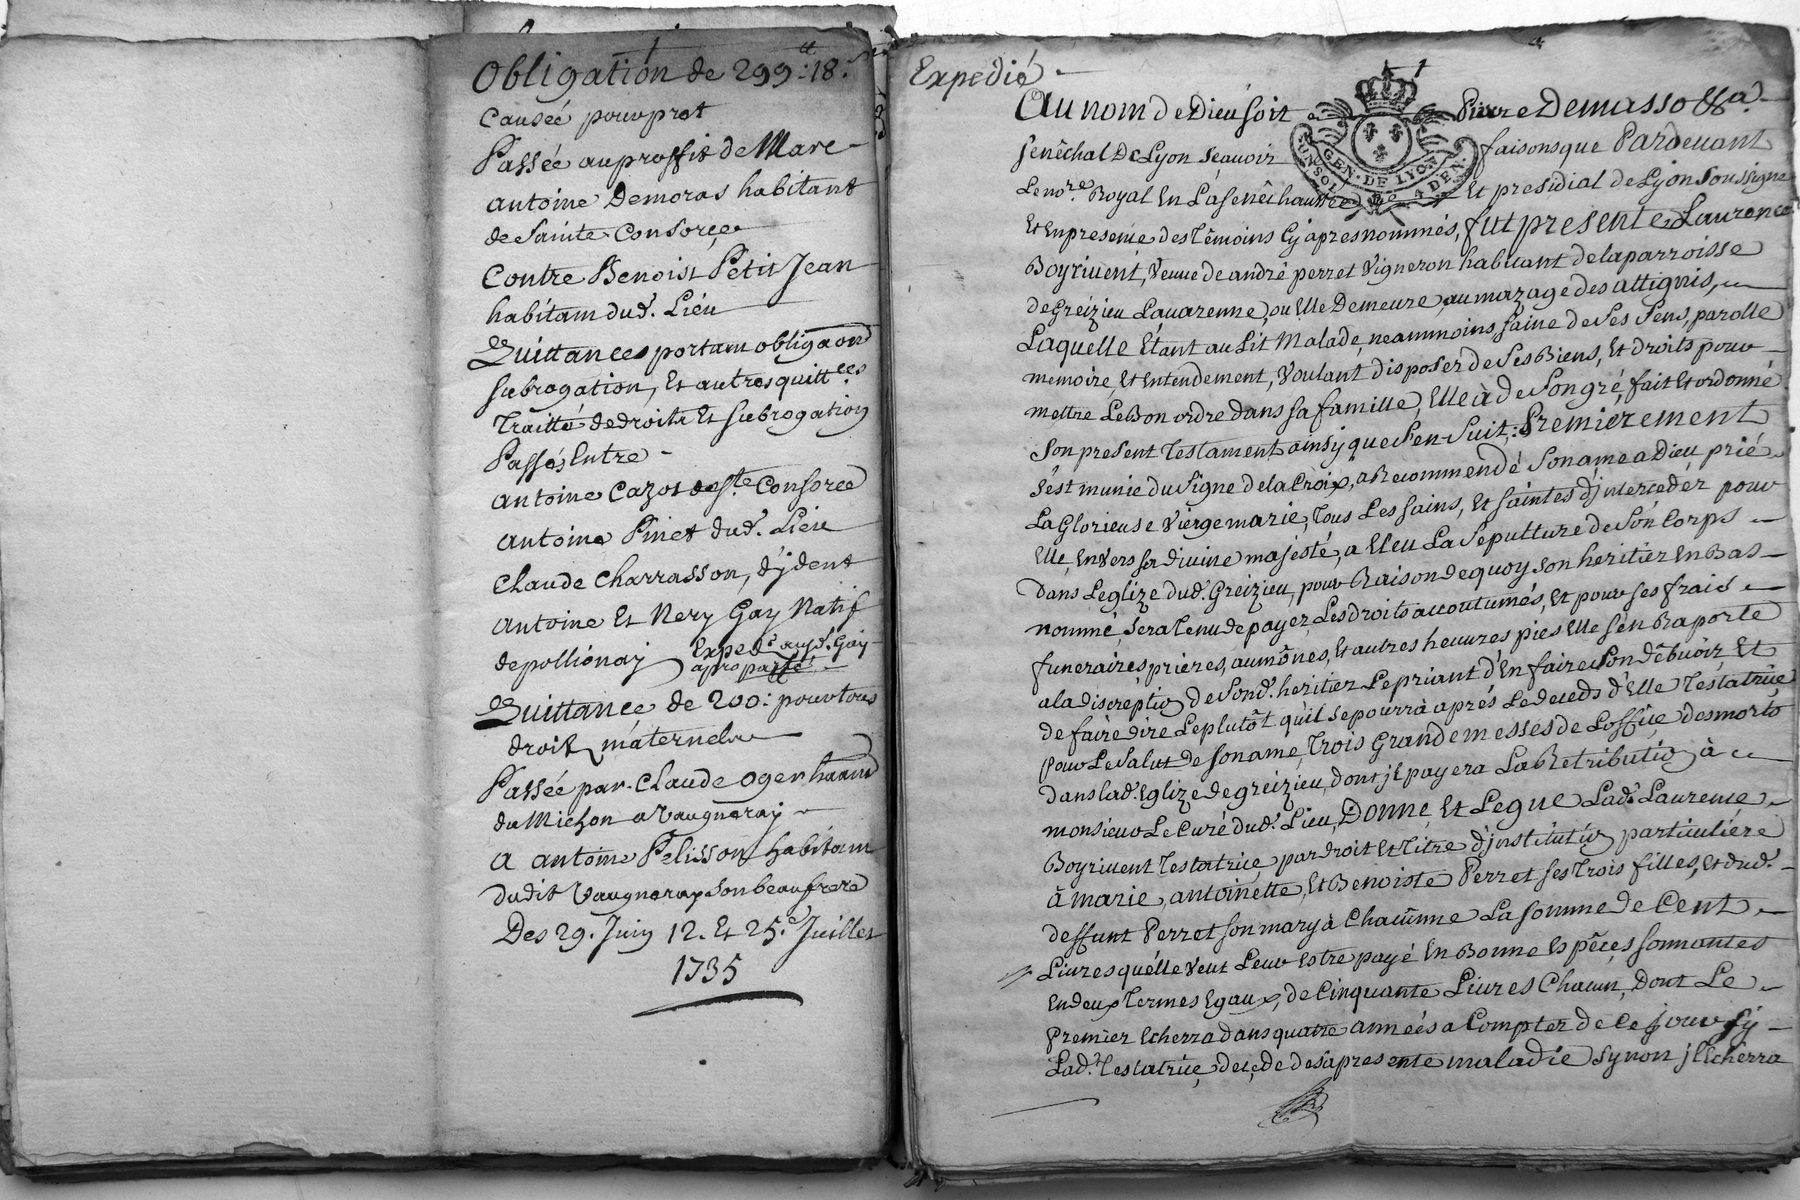 Obligation de 299.ᵗᵗ:18.ˢ
Causéé pour pret
Passéé au proffit de Marc
antoine Demoras habitant
de Sainte Consorçe
Contre Benoist Petit Jean
habitant dud. Lieu
Quittances portant obligaon
subrogation, Et autres quittces
Traitté de droits Et subrogation
Passés Entre
antoine Cazot de Ste Consorce
antoine Pinet dud. Lieu
Claude Charrasson, d'ydent
Antoine Et Nery Gay Natif
de pollionay Exped. aud. Gay
apro parte
Quittance de 200: pour tous
droits maternels
Passéé par Claude Oger
du Michon a Vaugneray
a antoine Pelisson habitant
dudit Vaugneray son beaufrere
Des 29. Juin 12. Et 25.e Juillet
1735
Expedié
Au nom de Dieu soit Pierre Demasso &a.
senéchal De Lyon sçavoir faisons que Pardevant
Le nore. Royal En La senêchaussée Et presidial de Lyon soussigné
Et En presence des Têmoins Cy apres nommés, fut presente Laurence
Boyrivent, Veuve de andré perret Vigneron habitant de la parroisse
de Greizieu Lavarenne, ou Elle Demeure, au mazage des attignis,
Laquelle Etant au Lit Malade, neammoins saine de ses sens, parolle
memoire, Et Entendement, Voulant disposer de ses Biens, Et droits pour
mettre Le Bon ordre dans sa famille, Elle à de son gré, fait Et ordonné
son present Testament ainsy que s'en suit: Premierement
s'est munie du signe de la Croix, a Recommendé son ame a Dieu prié
La Glorieuse Viergemarie, Tous Les sains, Et saintes d'jnterçedér pour
Elle, Envers sa divine majesté, a Eleu La sepulture de son Corps
dans L'eglize dud. Greizieu, pour Raison de quoy son heritier En Bas
nommé sera tenu de payer Les droits accoutumés, Et pour ses frais
funeraires, prieres, aumônes, Et autres heuvres pies Elle s'en Raporte
a la discreption de sond. heritier Le priant d'En faire son dêbvoir, Et
de faire dire Le plutôt qu'il se pourrà aprés Le deceds d'Elle Testatriçe
pour Le salut de son ame, Trois Grande messes de L'offiçe des morts
dans lad. Eglize de greizieu, dont jl payera La Retribution à
monsieur Le Curé dud. Lieu, Donne Et Legue Lad. Laurence
Boyrivent Testatrice par droit Et Titre d'jnstitution particuliére
à marie, antoinette, Et Benoiste Perret ses Trois filles, Et dud.
deffunt Perret son mary à Chacûnne La somme de Cent
Livres quélle veut Leur Estre payé En Bonne Espêçes sonnantes
En deux Termes Egaux, de Cinquante Livres Chacun, Dont Le
Premier Echerra dans quatre annéés a Compter de Ce jour sy
Lad. Testatriçe deçede de sa presente maladie synon jl Echerra
UN SOL
GEN. DE LYON
4 DEN.